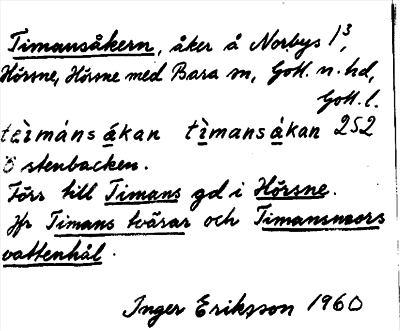 Timansåkern, åker å Norbys 1³,
Hörsne, Hörsne med Bara sn, Gotl. n. hd,
Gotl. l.
teìmáns åkan tìmansåkan 252
Ö stenbacken.
Förr till Timans gd i Hörsne.
Jfr Timans tvärar och Timansmors
vattenhål.
Inger Eriksson 1960